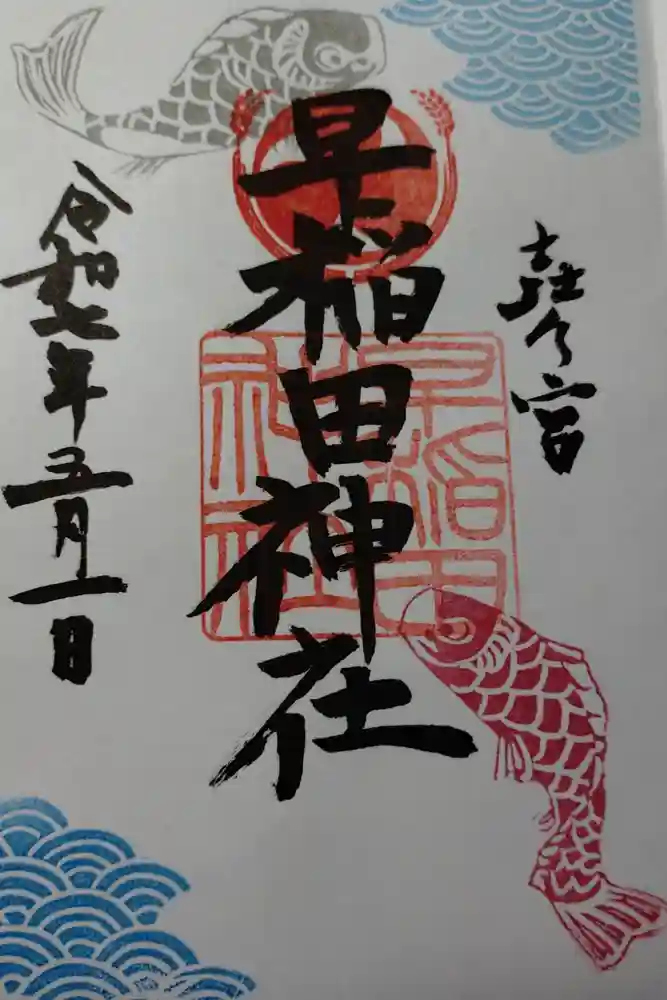 宮
早稲田神社
令和七年五月一日
早稲田
神社